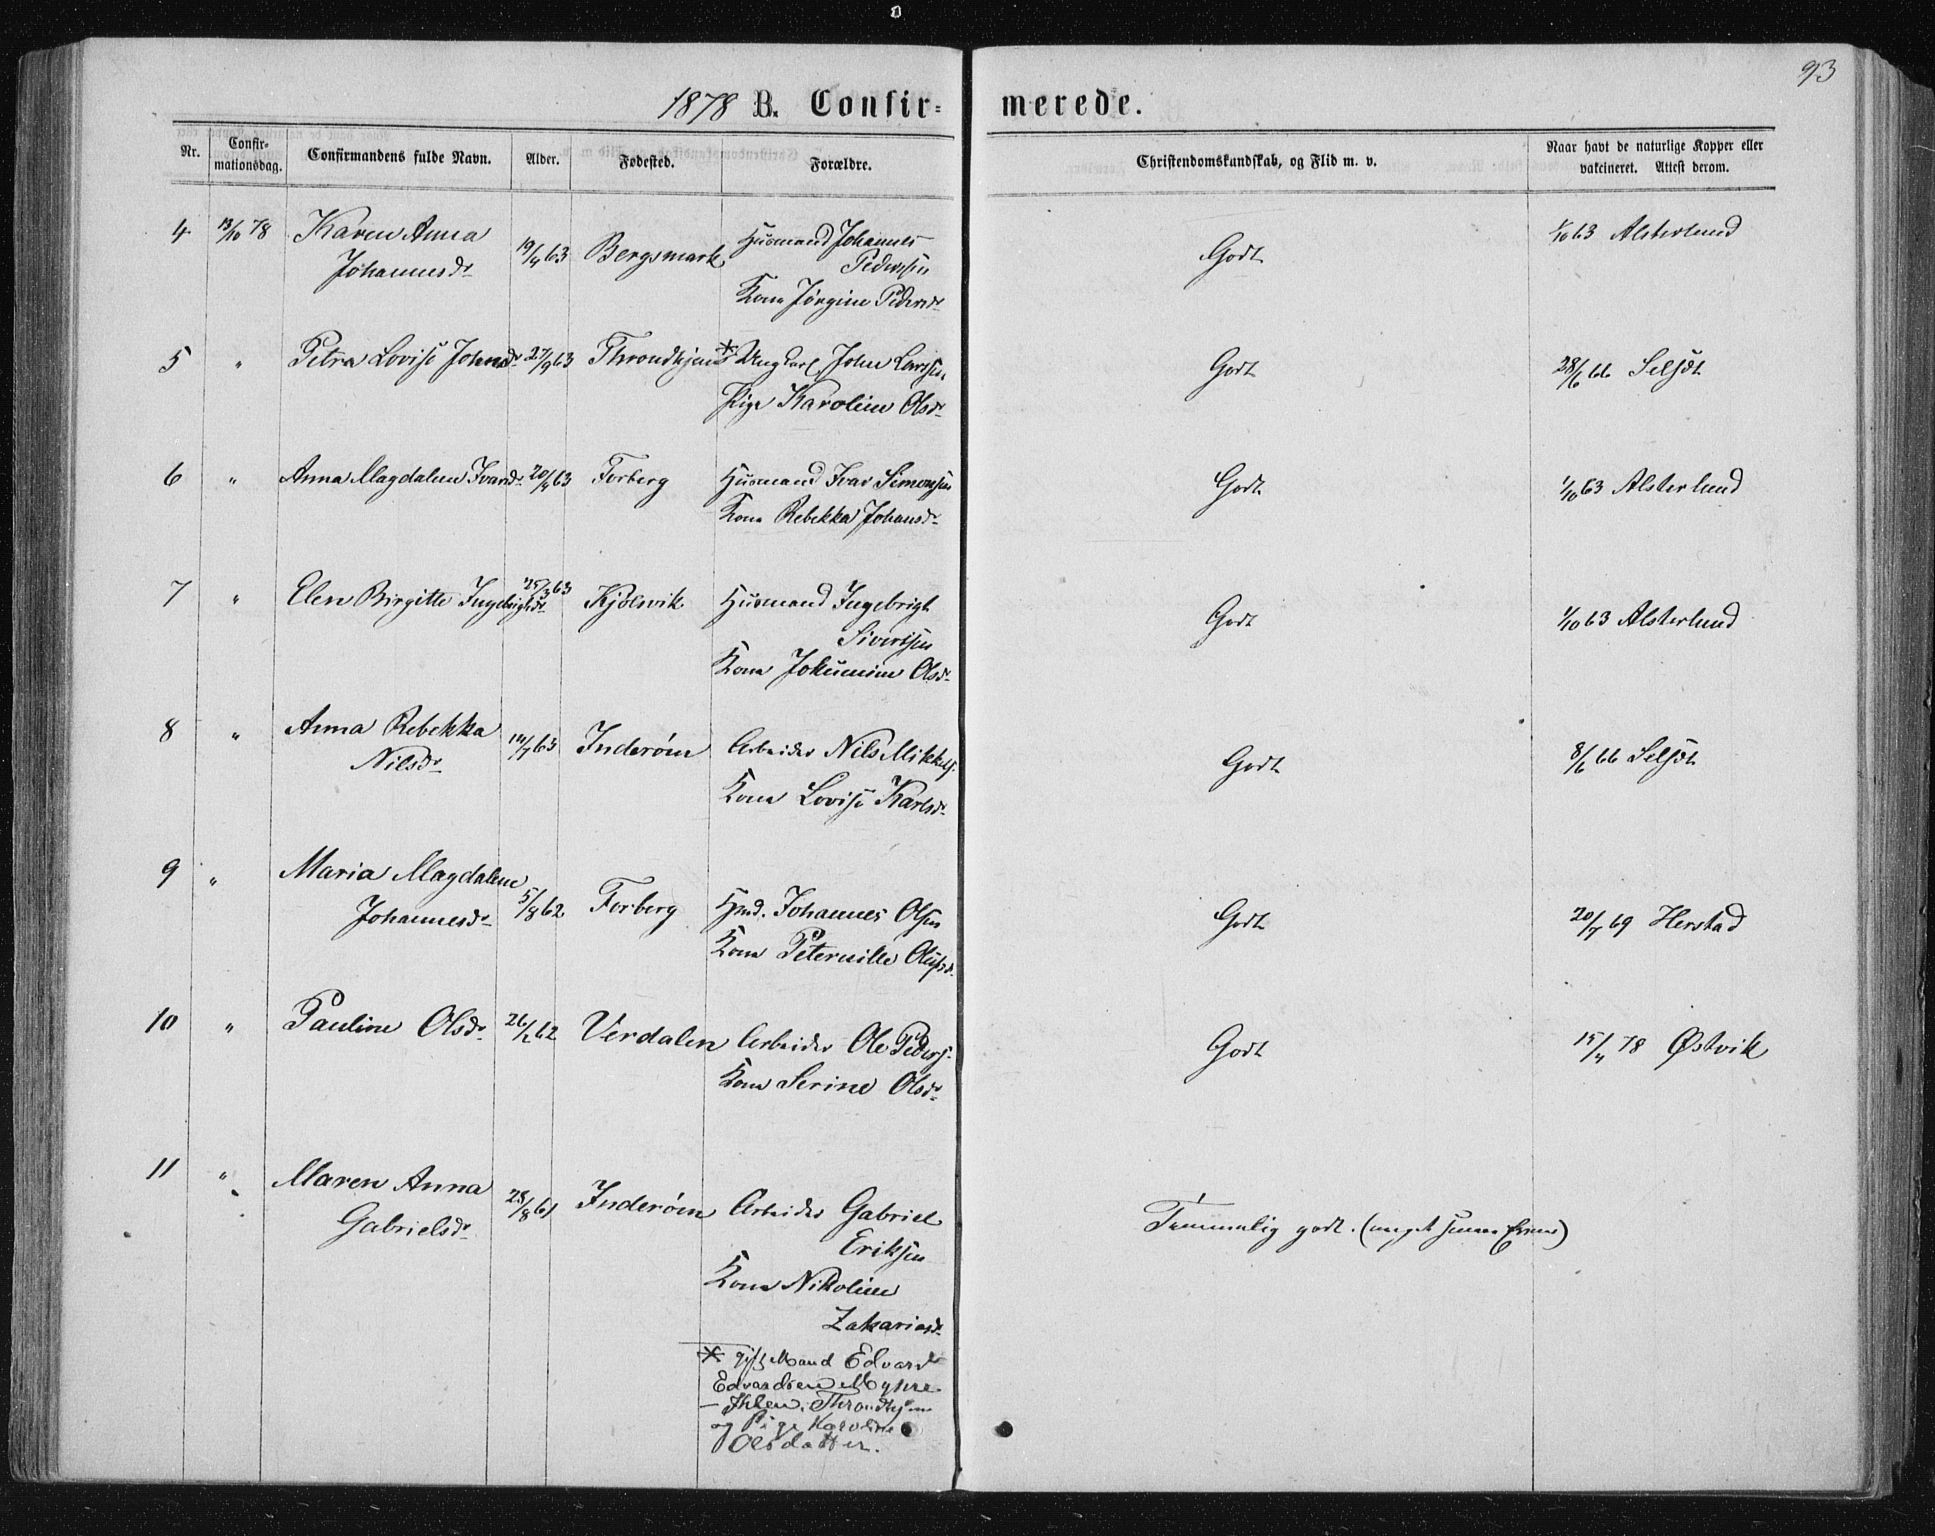 93
1878 B. Confir= merede.
Nr. Confir-mationsdag. Confirmandens fulde Navn. Alder. Fødested. Forældre. Christendomskundskab, og Flid m. v. Naar havt de naturlige Kopper eller vakcineret. Attest derom.
4 13/10 78 Karen Anna 19/4 63 Bergsmark Husmand Johannes Godt 1/10 63 Alsterlund
Johannesdr Pedersen
Kone Jørgine Pedersdr
5 " Petra Lovise Johnsdr 27/9 63 Throndhjem * Ungkarl John Larssen Godt 28/6 66 Selsdt
Pige Karoline Olsdr
6 " Anna Magdalena Ivarsdr 20/4 63 Forberg Husmand Ivar Simonsen Godt 1/10 63 Alsterlund
Kone Rebekka Johansdr
7 " Elen Birgitte Ingebrigtsdr 25/3 63 Kjølsvik Husmand Ingebrigt Godt 1/10 63 Alsterlund
Sivertsen
Kone Jokumine Olsdr
8 " Anna Rebekka 14/7 63 Inderøen Arbeider Nils Mikkels. Godt 8/6 66 Selsdt
Nilsdr Kone Lovise Karlsdr
9 " Maria Magdalene 5/8 62 Forberg Hmd. Johannes Olsen Godt 20/7 69 Herstad
Johannesdr Kone Peternille
10 " Pauline Olsdr 26/2 62 Verdalen Arbeider Ole Peders. Godt 15/4 78 Østvik
Kone Serine Olsdr
11 " Maren Anna 28/8 61 Inderøen Arbeider Gabriel Temmelig godt. (meget
Gabrielsdr Eriksen
Kone Nikoline
Zakariasdr
* gift Mand Edvard
Edvardsen Myhre
- Ihlen, Throndhjem
og Pige Karoline
Olsdatter.